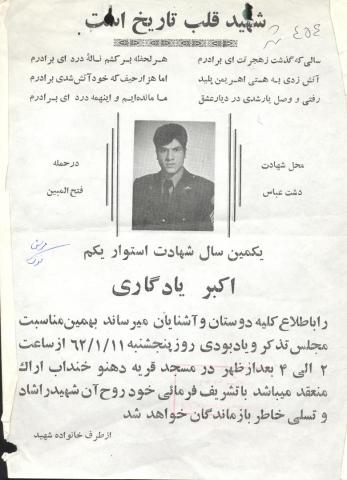 شهید قلب تاریخ است
۴۵۴
سالی که گذشت ز هجرت ای برادرم هر لحظه بر کشم ناله درد ای برادرم
آتش زدی به هستی اهریمن پلید اما هزار حیف که خود آتش شدی برادرم
رفتی و وصل یار شدی در دیار عشق ما مانده‌ایم و اینهمه درد ای برادرم
محل شهادت در حمله
دشت عباس فتح المبین
یکمین سال شهادت استوار یکم
اکبر یادگاری
را باطلاع کلیه دوستان و آشنایان میرساند بهمین مناسبت
مجلس تذکر و یادبودی روز پنجشنبه ۶۲/۱/۱۱ از ساعت
۲ الی ۴ بعدازظهر در مسجد قریه دهنو خنداب اراک
منعقد میباشد با تشریف فرمائی خود روح آن شهید را شاد
و تسلی خاطر بازماندگان خواهد شد
از طرف خانواده شهید